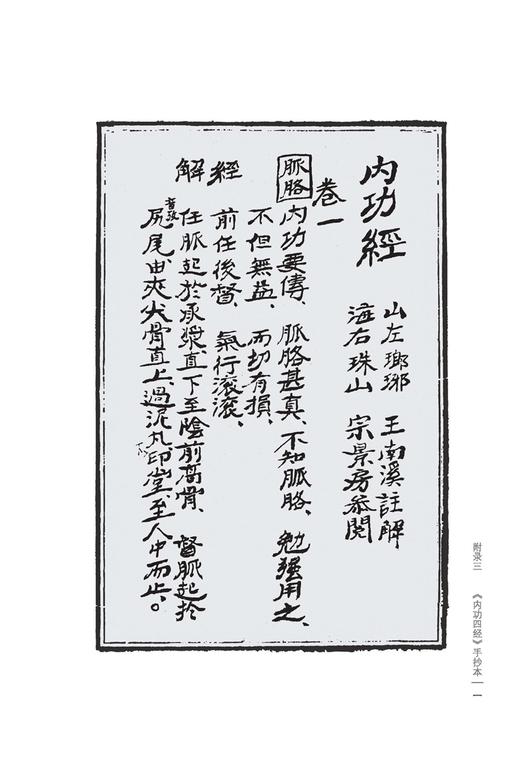 內功經
山左瑯琊 王南溪註解
海右珠山 宗景房參閱
卷一
脈胳 內功要傳、脈胳甚真、不知脈胳、勉强用之、
不但無益、而切有損、
經 前任後督、氣行滾滾、
解 任脈起於承漿、直下至陰前高骨、督脈起於
尻尾、由夾犬骨直上、過泥丸、下印堂、至人中而止。
附录三 《内功四经》手抄本 一